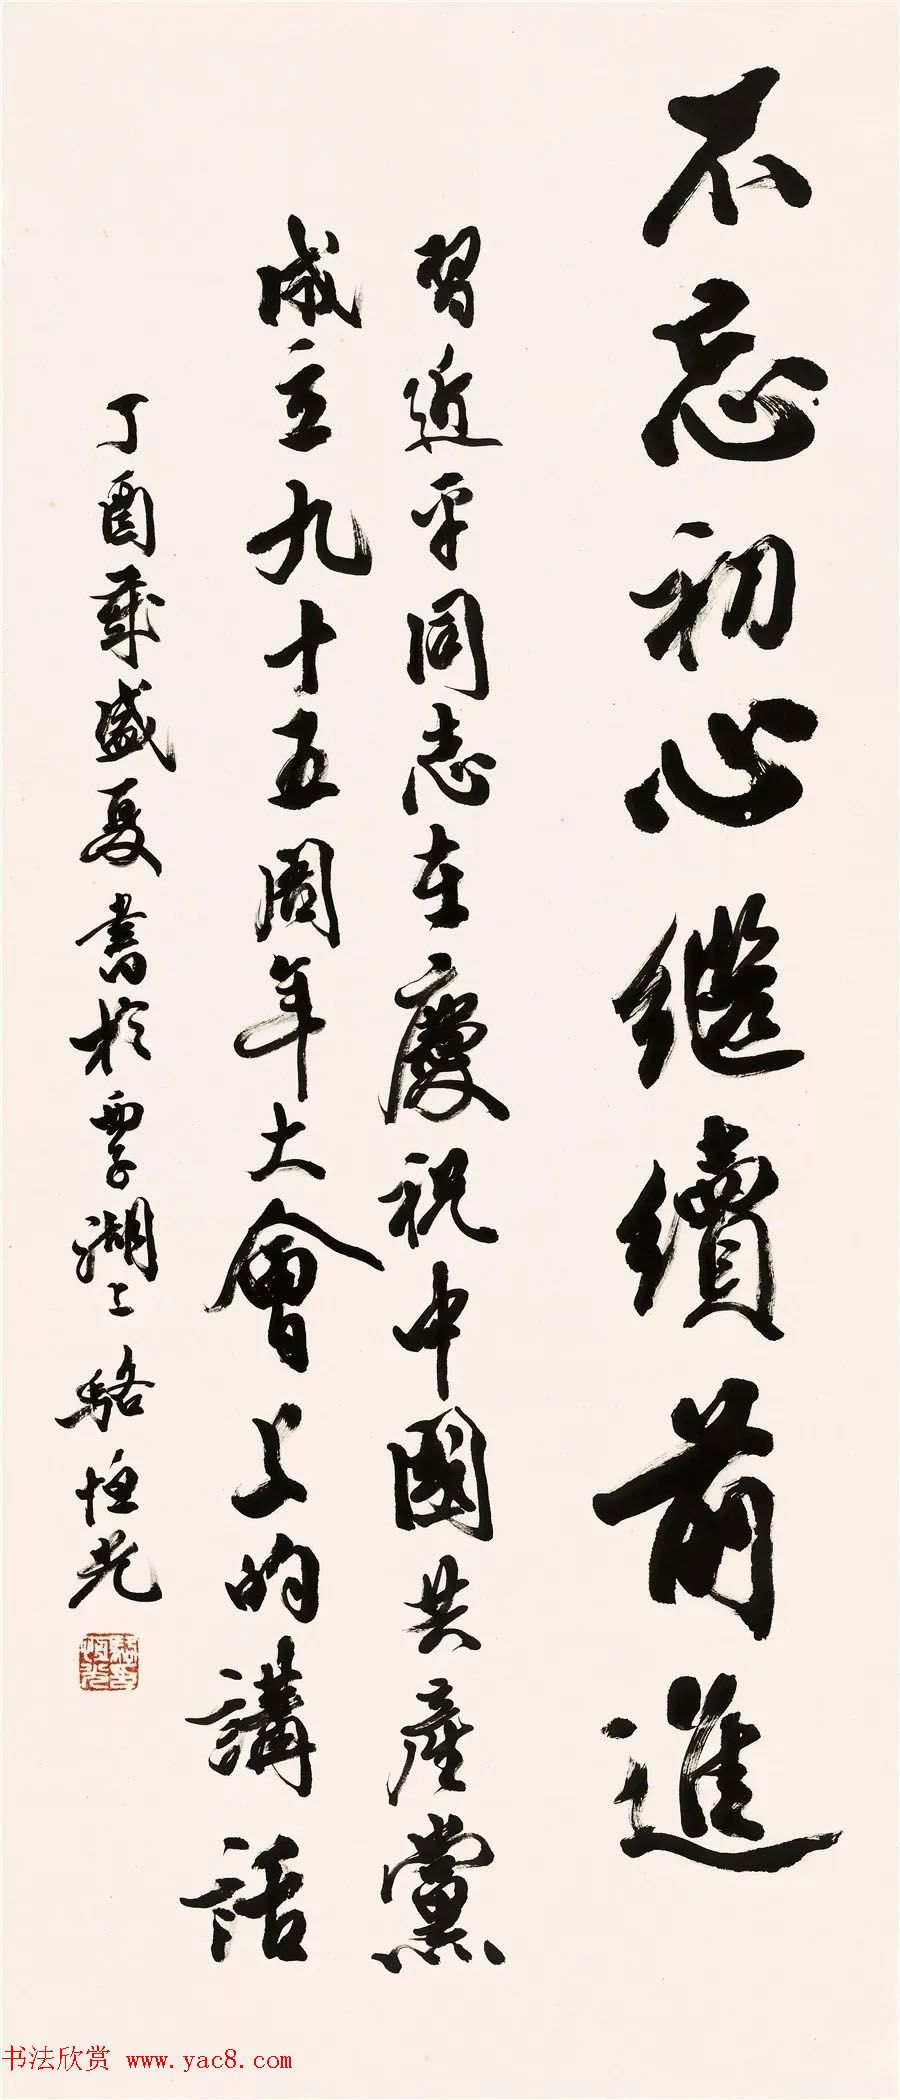 不忘初心继續前進
習近平同志在慶祝中國共產黨
成立九十五周年大會上的講話
丁酉年盛夏書於覃湖上 駱恒光
駱恒光印
书法欣赏 www.yac8.com